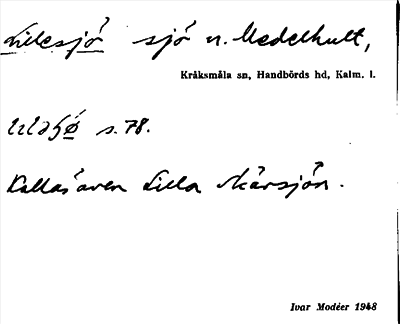 Lillesjö sjö n. Medelhult,
Kråksmåla sn, Handbörds hd, Kalm. l.
s. 78.
Kallas även Lilla Kärsjön.
Ivar Modéer 1948